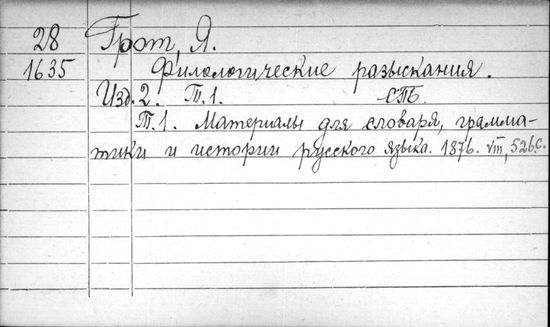 28 Грот, Я.
1635 Филологические разыскания.
Изд. 2. Т. 1. СПБ.
Т. 1. Материалы для словаря, грамма-
тики и истории русского языка. 1876. VIII, 526 с.